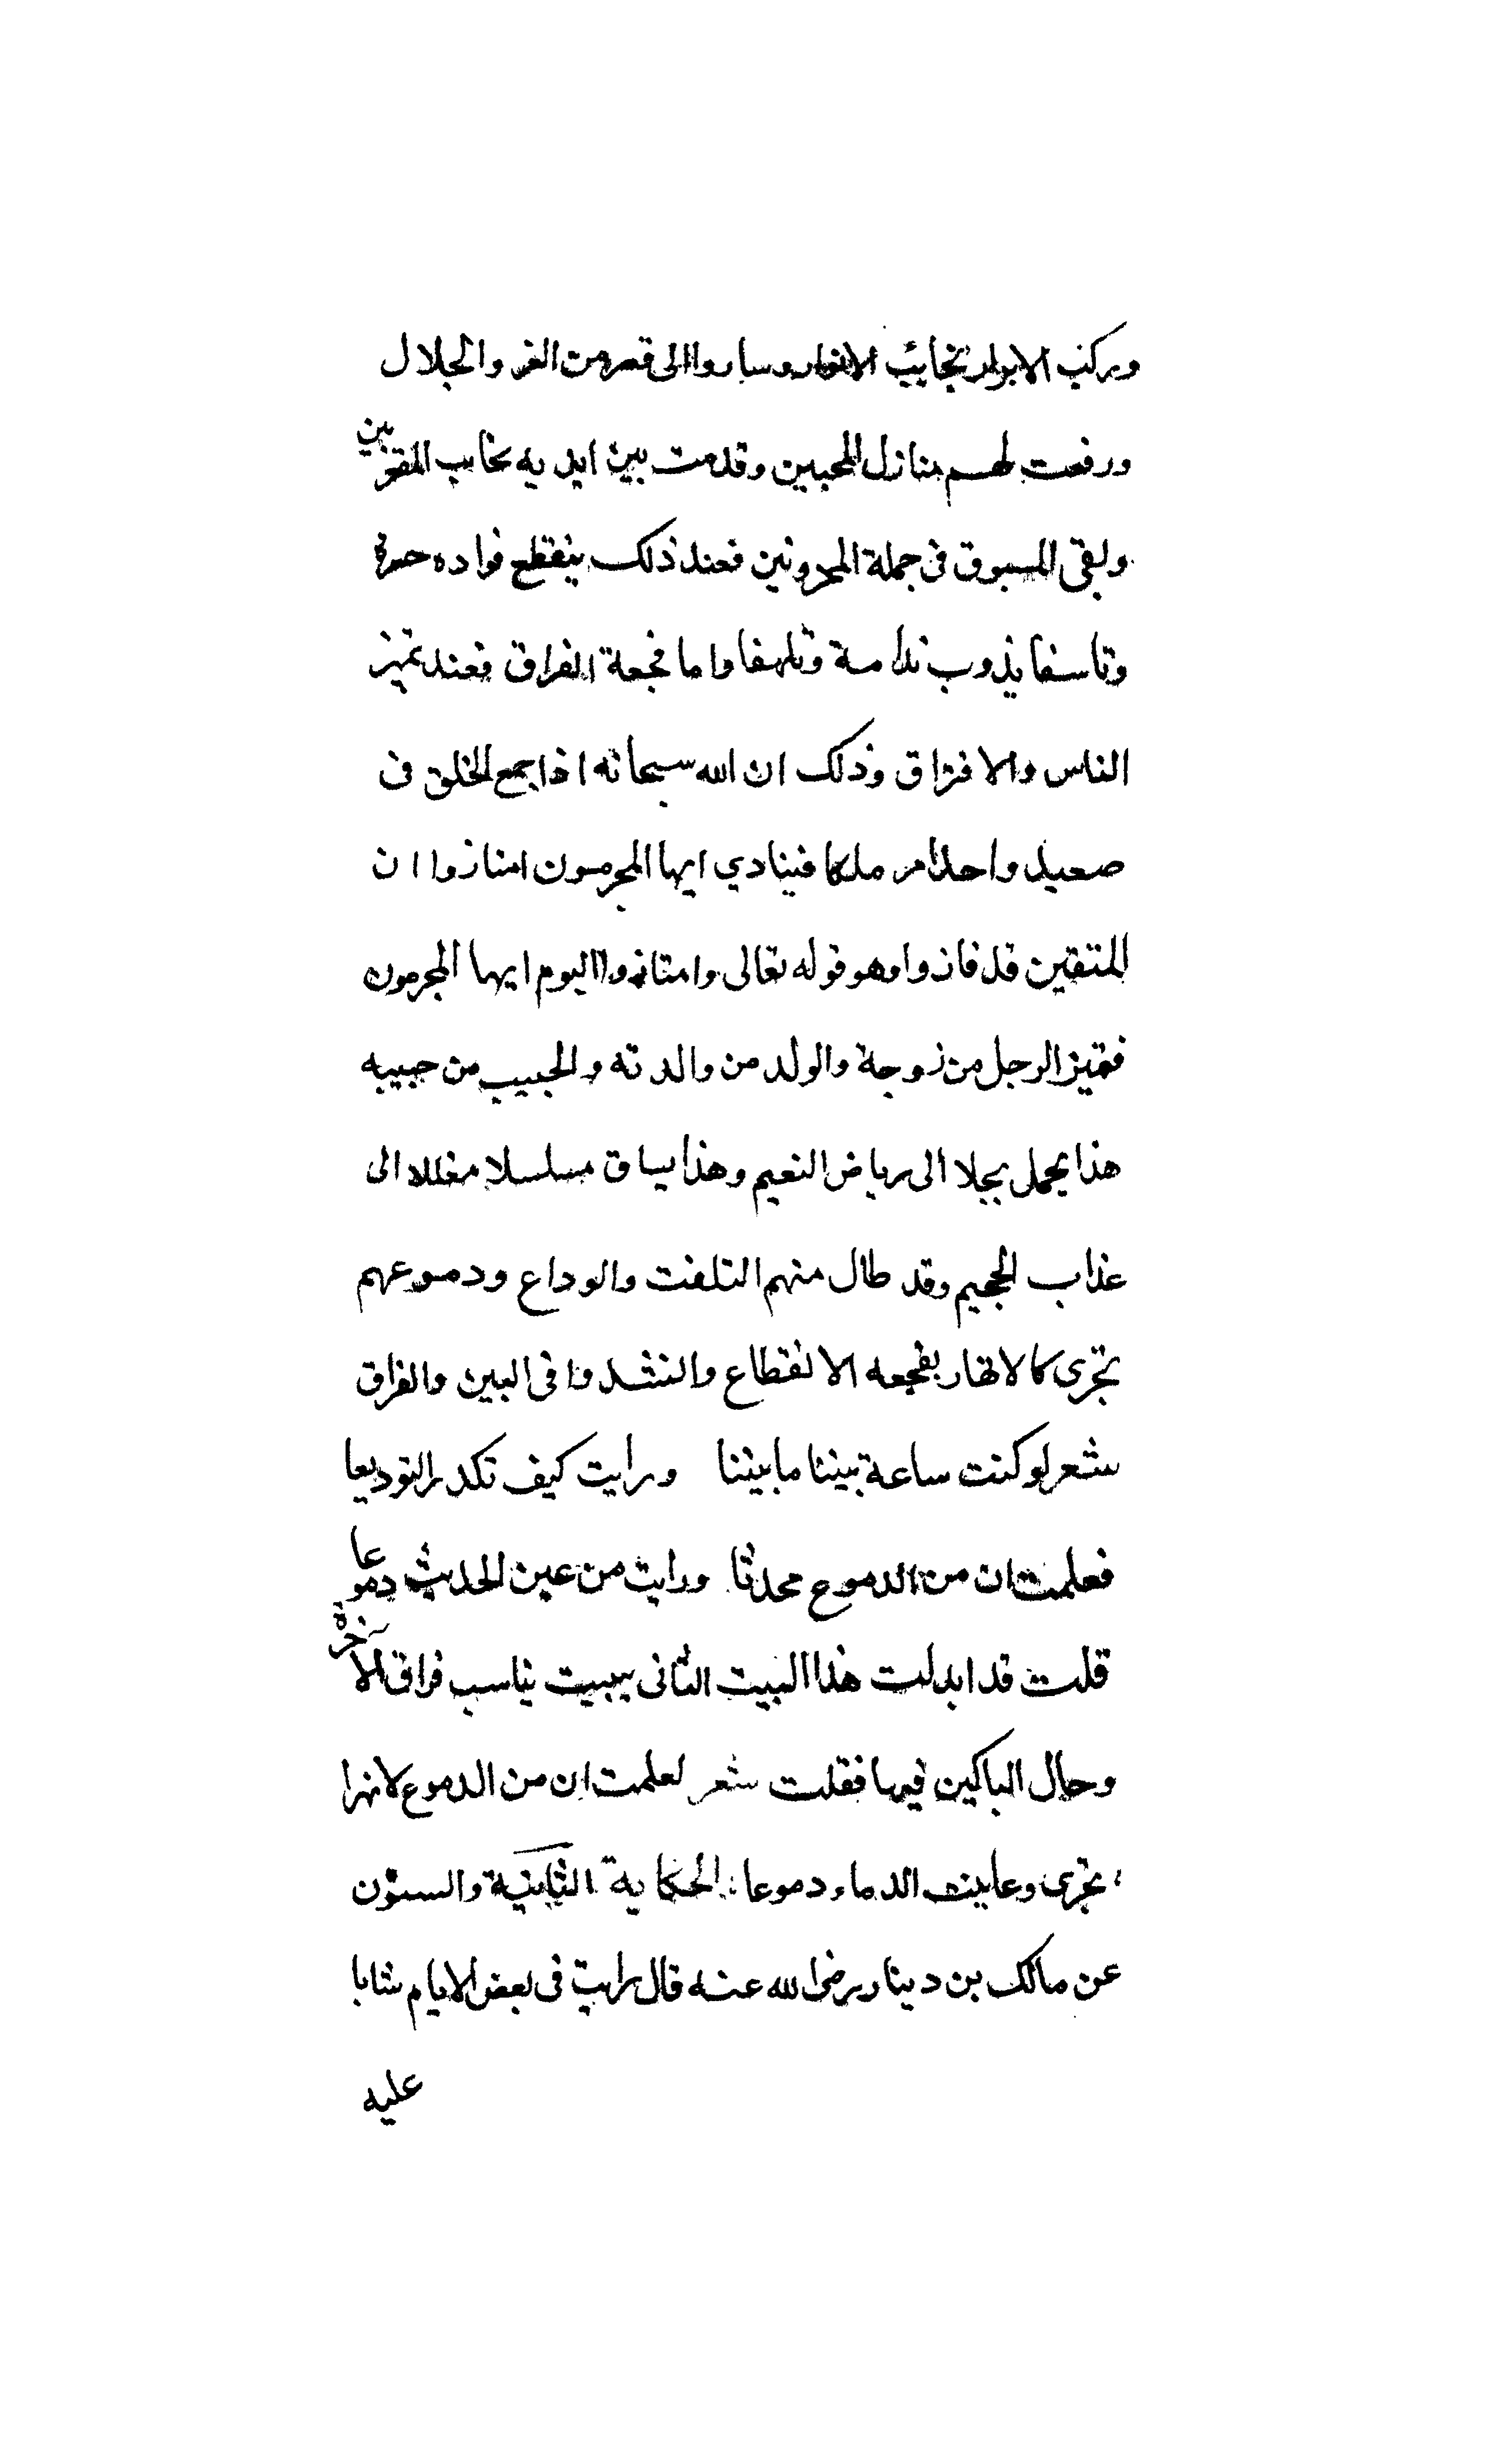 وركب الابرار نجائب الانوار وساروا الى قصر من العز والجلال
ورفعت لهم منازل المحبين وقدمت بين ايديه نجايب المقربين
ولبقى المسبوق في جملة المحرونين فعند ذلك ينقطع فواده حسرة
وتاسفا يذوب ندامة وتلهفا واما فجعة الفراق فعند تميز
الناس والافتراق وذلك ان الله سبحانه اذا جمع الخلق في
صعيد واحد امر ملكا فينادي ايها المجرمون امتازوا ان
المتقين قد فازوا وهو قوله تعالى وامتازوا اليوم ايها المجرمون
فيتميز الرجل من زوجة والولد من والدته والحبيب من حبيبه
هذا يحمل بجلا الى رياض النعيم وهذا يساق مسلسلا مغللا الى
عذاب الجحيم وقد طال منهم التلفت والوداع ودموعهم
تجرى كالانهار بفجعه الانقطاع وانشدوا فى البين والفراق
شعر لو كنت ساعة بيننا ما بيننا ورايت كيف تكدر التوديعا
فعلمت ان من الدموع محدثا ورايت من عين الحديث دموعا
قلت قد ابدلت هذا البيت الثانى ببيت يناسب فراق الآخرة
وحال الباكين فيها فقلت شعر لعلمت ان من الدموع لانهرا
تجرى وعاينت الدماء دموعا الحكاية الثانية والستون
عن مالك بن دينار رضى الله عنه قال رايت فى بعض الايام شابا
عليه